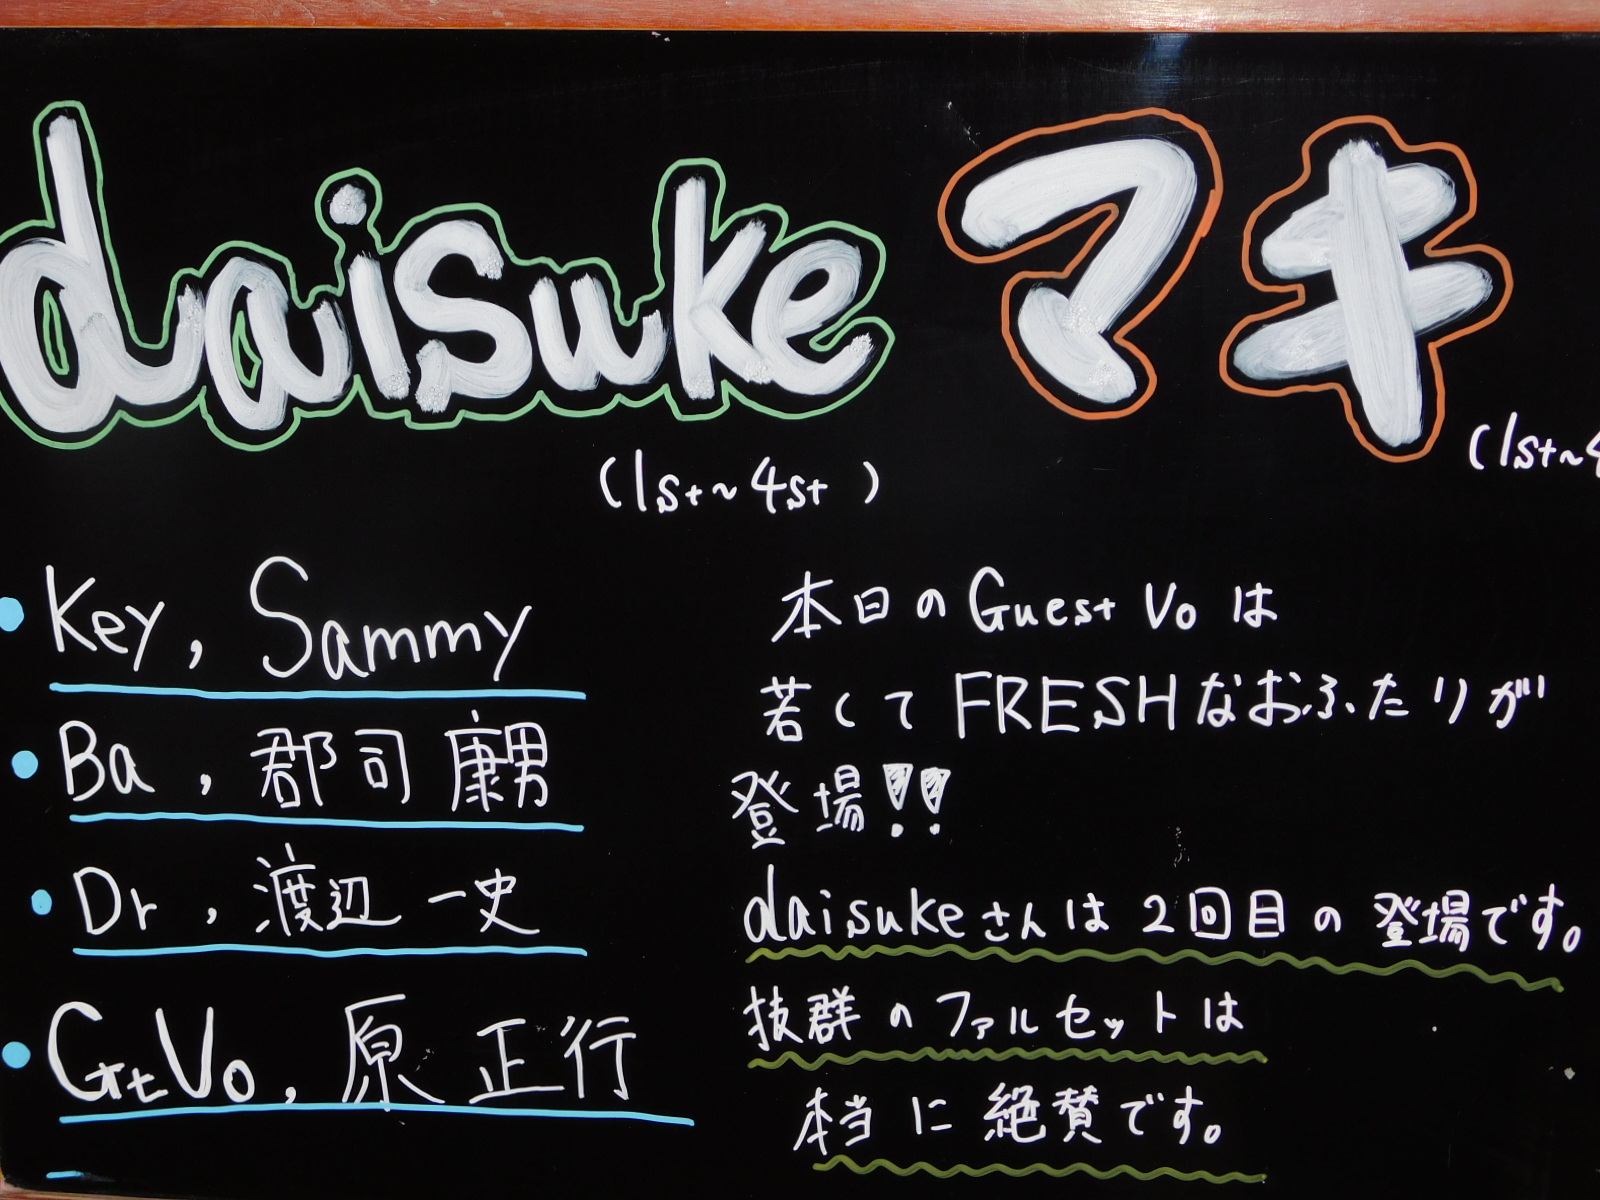 daisuke マキ
(1st~4st)
(1st~4
・Key, Sammy
・Ba, 郡司 康男
・Dr, 渡辺 一史
・GtVo, 原 正行
本日のGuest Voは
若くてFRESHなおふたりが
登場!!
daisukeさんは2回目の登場です。
抜群のファルセットは
本当に絶賛です。